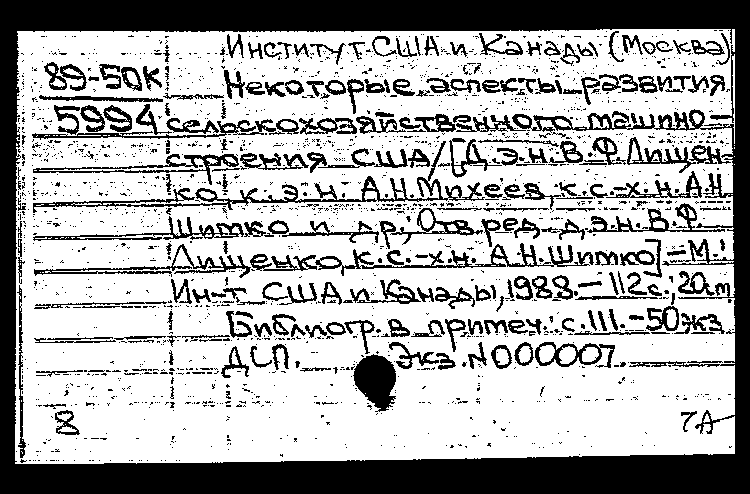 Институт США и Канады (Москва)
89-50К
Некоторые аспекты развития
5994
сельскохозяйственного машино-
строения США/[Д.э.н. В.Ф.Лищен-
ко, к.э.н. А.Н.Михеев, к.с.-х.н. А.Н.
Шитко и др.; Отв.ред. д.э.н. В.Ф.
Лищенко, к.с.-х.н. А.Н.Шитко].-М.:
Ин-т США и Канады, 1988.-112с.; 20см
Библиогр. в примеч.: с.111.-50экз
ДСП. Экз.N000007.
8
7А